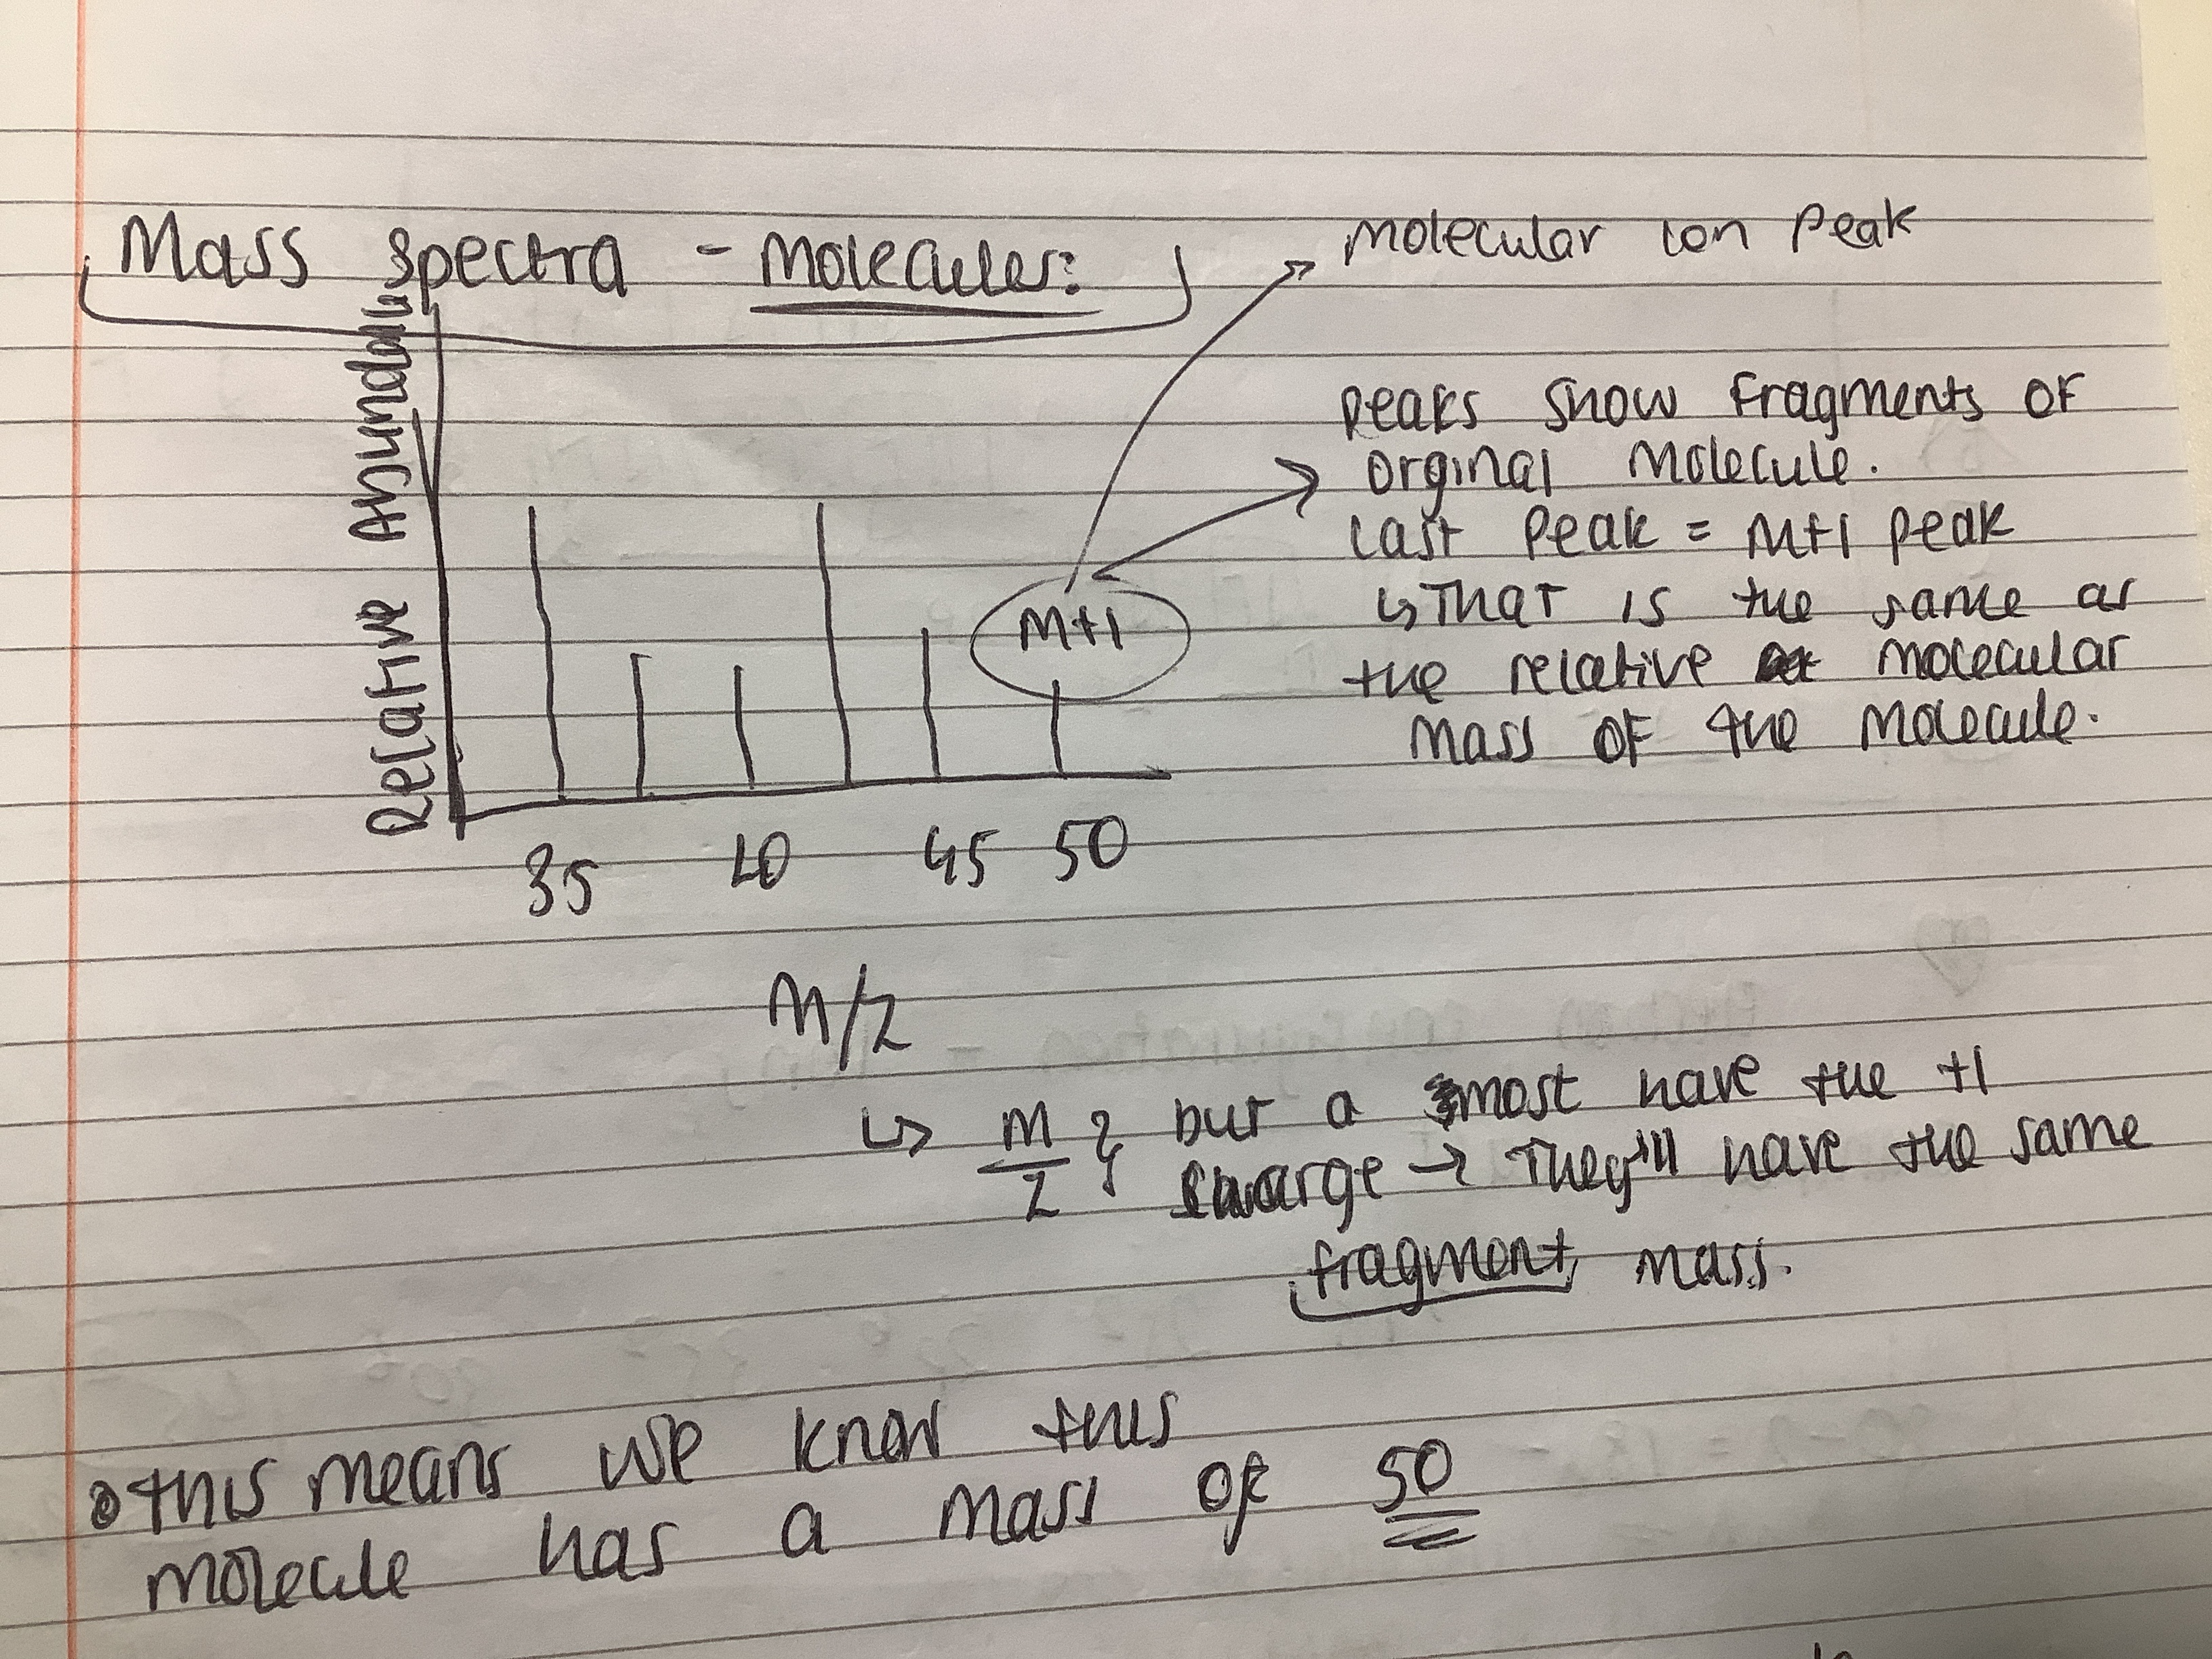 Mass spectra - Molecules:
Molecular ion peak
Relative Abundance
M+1
peaks show fragments of
orginal molecule.
last peak = M+1 peak
↳ That is the same as
the relative molecular
mass of the molecule.
35 40 45 50
M/Z
↳ M/Z } but a most have the +1
charge → They'll have the same
fragment mass.
this means we know this
molecule has a mass of 50